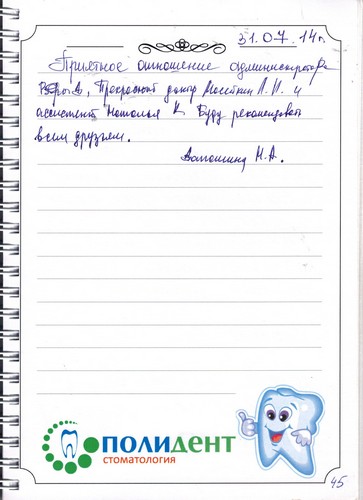 31.07.14г.
Приятное отношение администратора
Прекрасный доктор Л.И. и
ассистент Наталья К. Буду рекомендовать
всем друзьям.
М.А.
ПОЛИДЕНТ
СТОМАТОЛОГИЯ
45